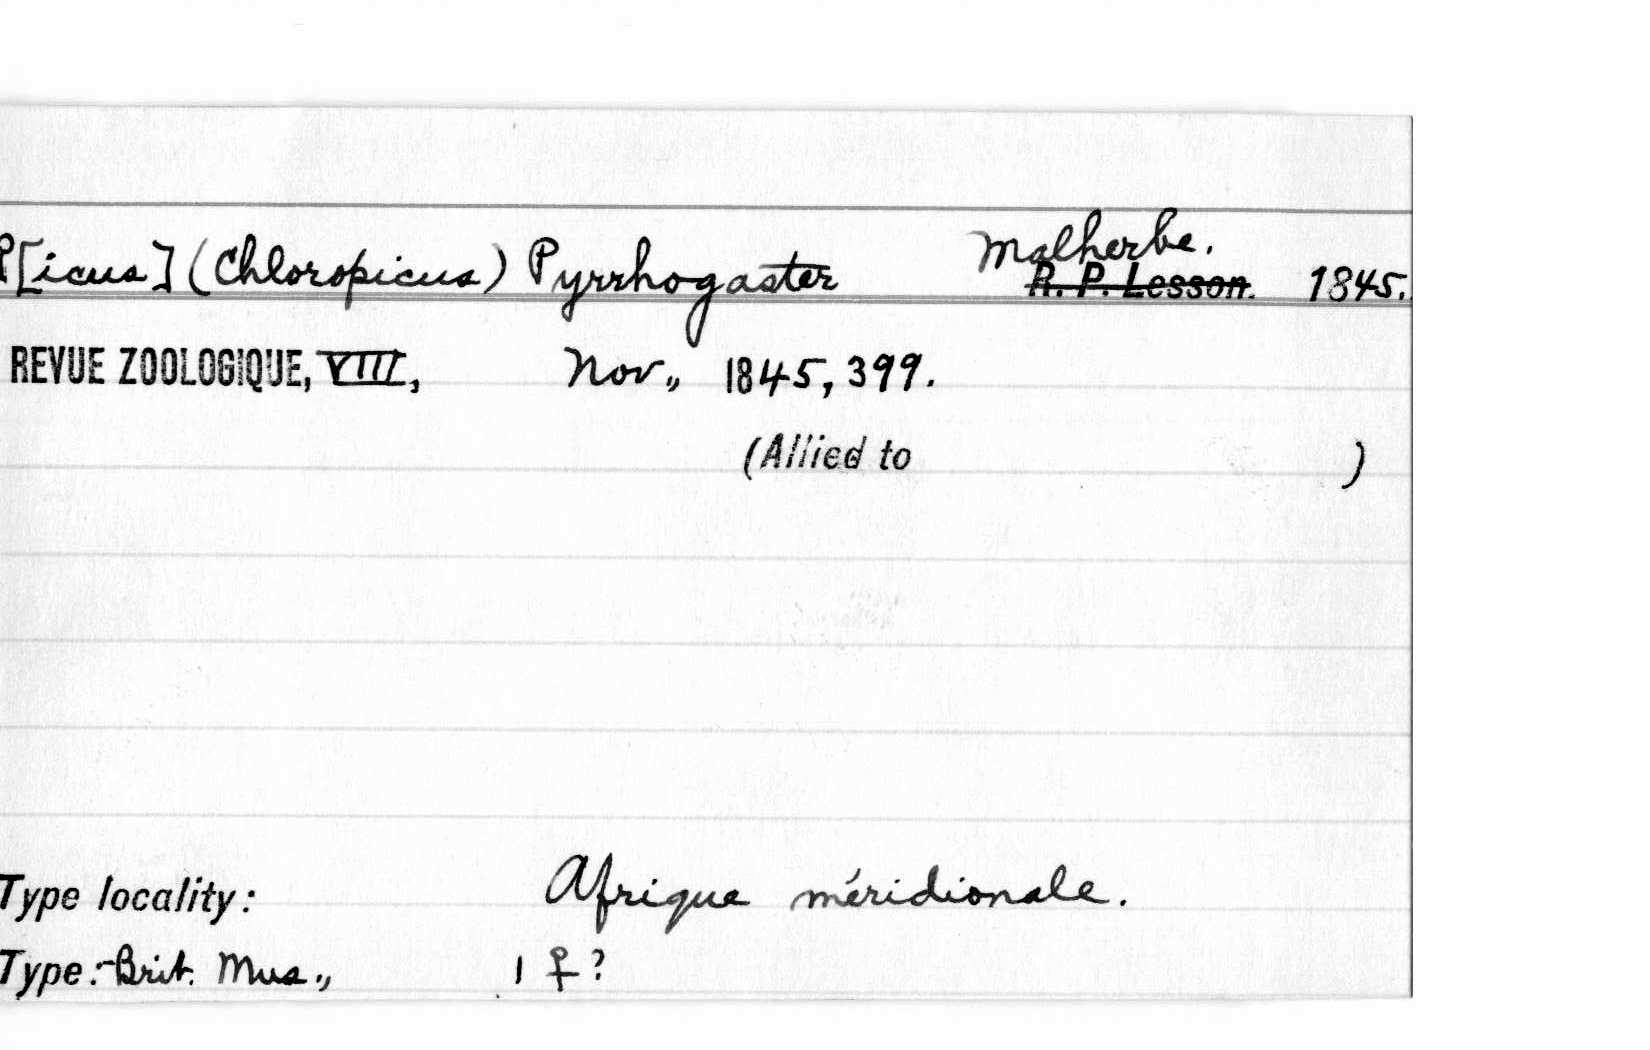 P[icus] (Chloropicus) Pyrrhogaster Malherbe. R. P. Lesson. 1845.
REVUE ZOOLOGIQUE, VIII, Nov., 1845, 399.
(Allied to )
Type locality: Afrique méridionale.
Type:-Brit. Mus., 1 ♀?